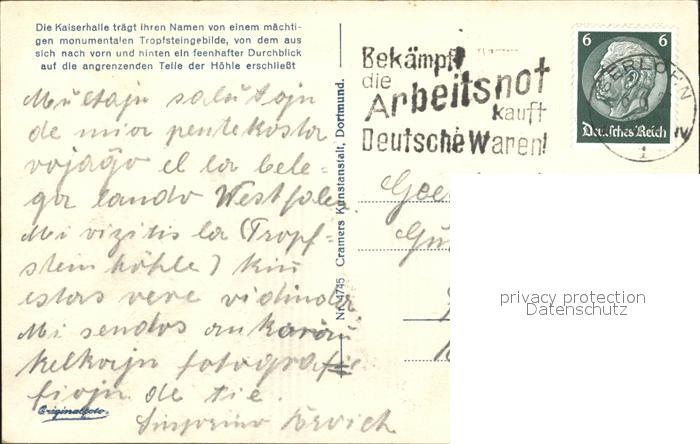 Die Kaiserhalle trägt ihren Namen von einem mächti-
gen monumentalen Tropfsteingebilde, von dem aus
sich nach vorn und hinten ein feenhafter Durchblick
auf die angrenzenden Teile der Höhle erschließt
Multajn salutojn
de mia pentekosta
vojaĝo el la bele-
ga lando Westfalen.
Mi vizitis la (Tropf-
steinhöhle) kiu
estas vere vidinda.
Mi sendos ankoraŭ
kelkajn fotografa-
ĵojn de tie.
Originalfoto
Nr. 4745 Cramers Kunstanstalt, Dortmund.
Bekämpft
die
Arbeitsnot
kauft
Deutsche Waren!
6 6
Deutsches Reich
ISERLOHN
privacy protection
Datenschutz